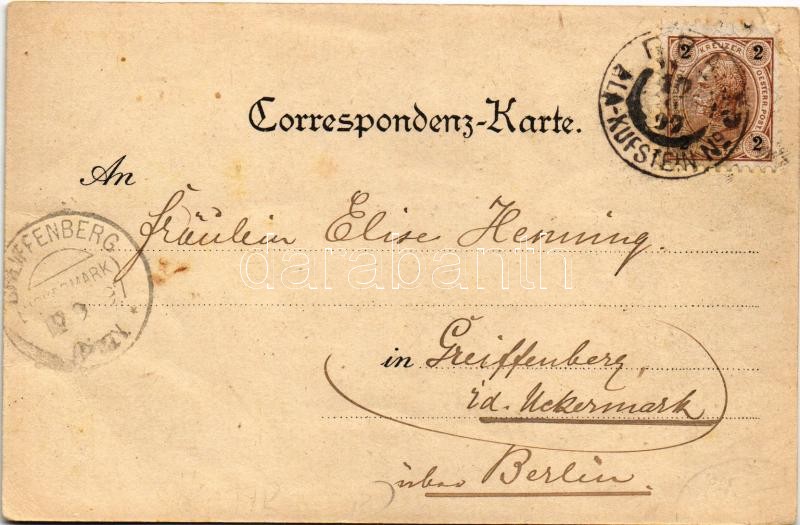 2 KREUZER 2
OESTERR. POST
2
ALA-KUFSTEIN No
99
Correspondenz-Karte.
An
Fräulein Elise Henning.
GREIFFENBERG
(UCKERMARK)
darabanth
in Greiffenberg
i/d. Uckermark
über Berlin.